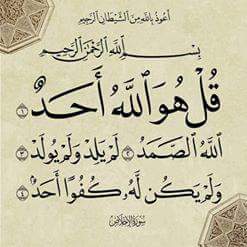 أعوذ بالله من الشيطان الرجيم
بِسْمِ ٱللَّهِ ٱلرَّحْمَٰنِ ٱلرَّحِيمِ
قُلْ هُوَ ٱللَّهُ أَحَدٌ ١
ٱللَّهُ ٱلصَّمَدُ ٢ لَمْ يَلِدْ وَلَمْ يُولَدْ ٣
وَلَمْ يَكُن لَّهُۥ كُفُوًا أَحَدٌۢ ٤
سورة الإخلاص